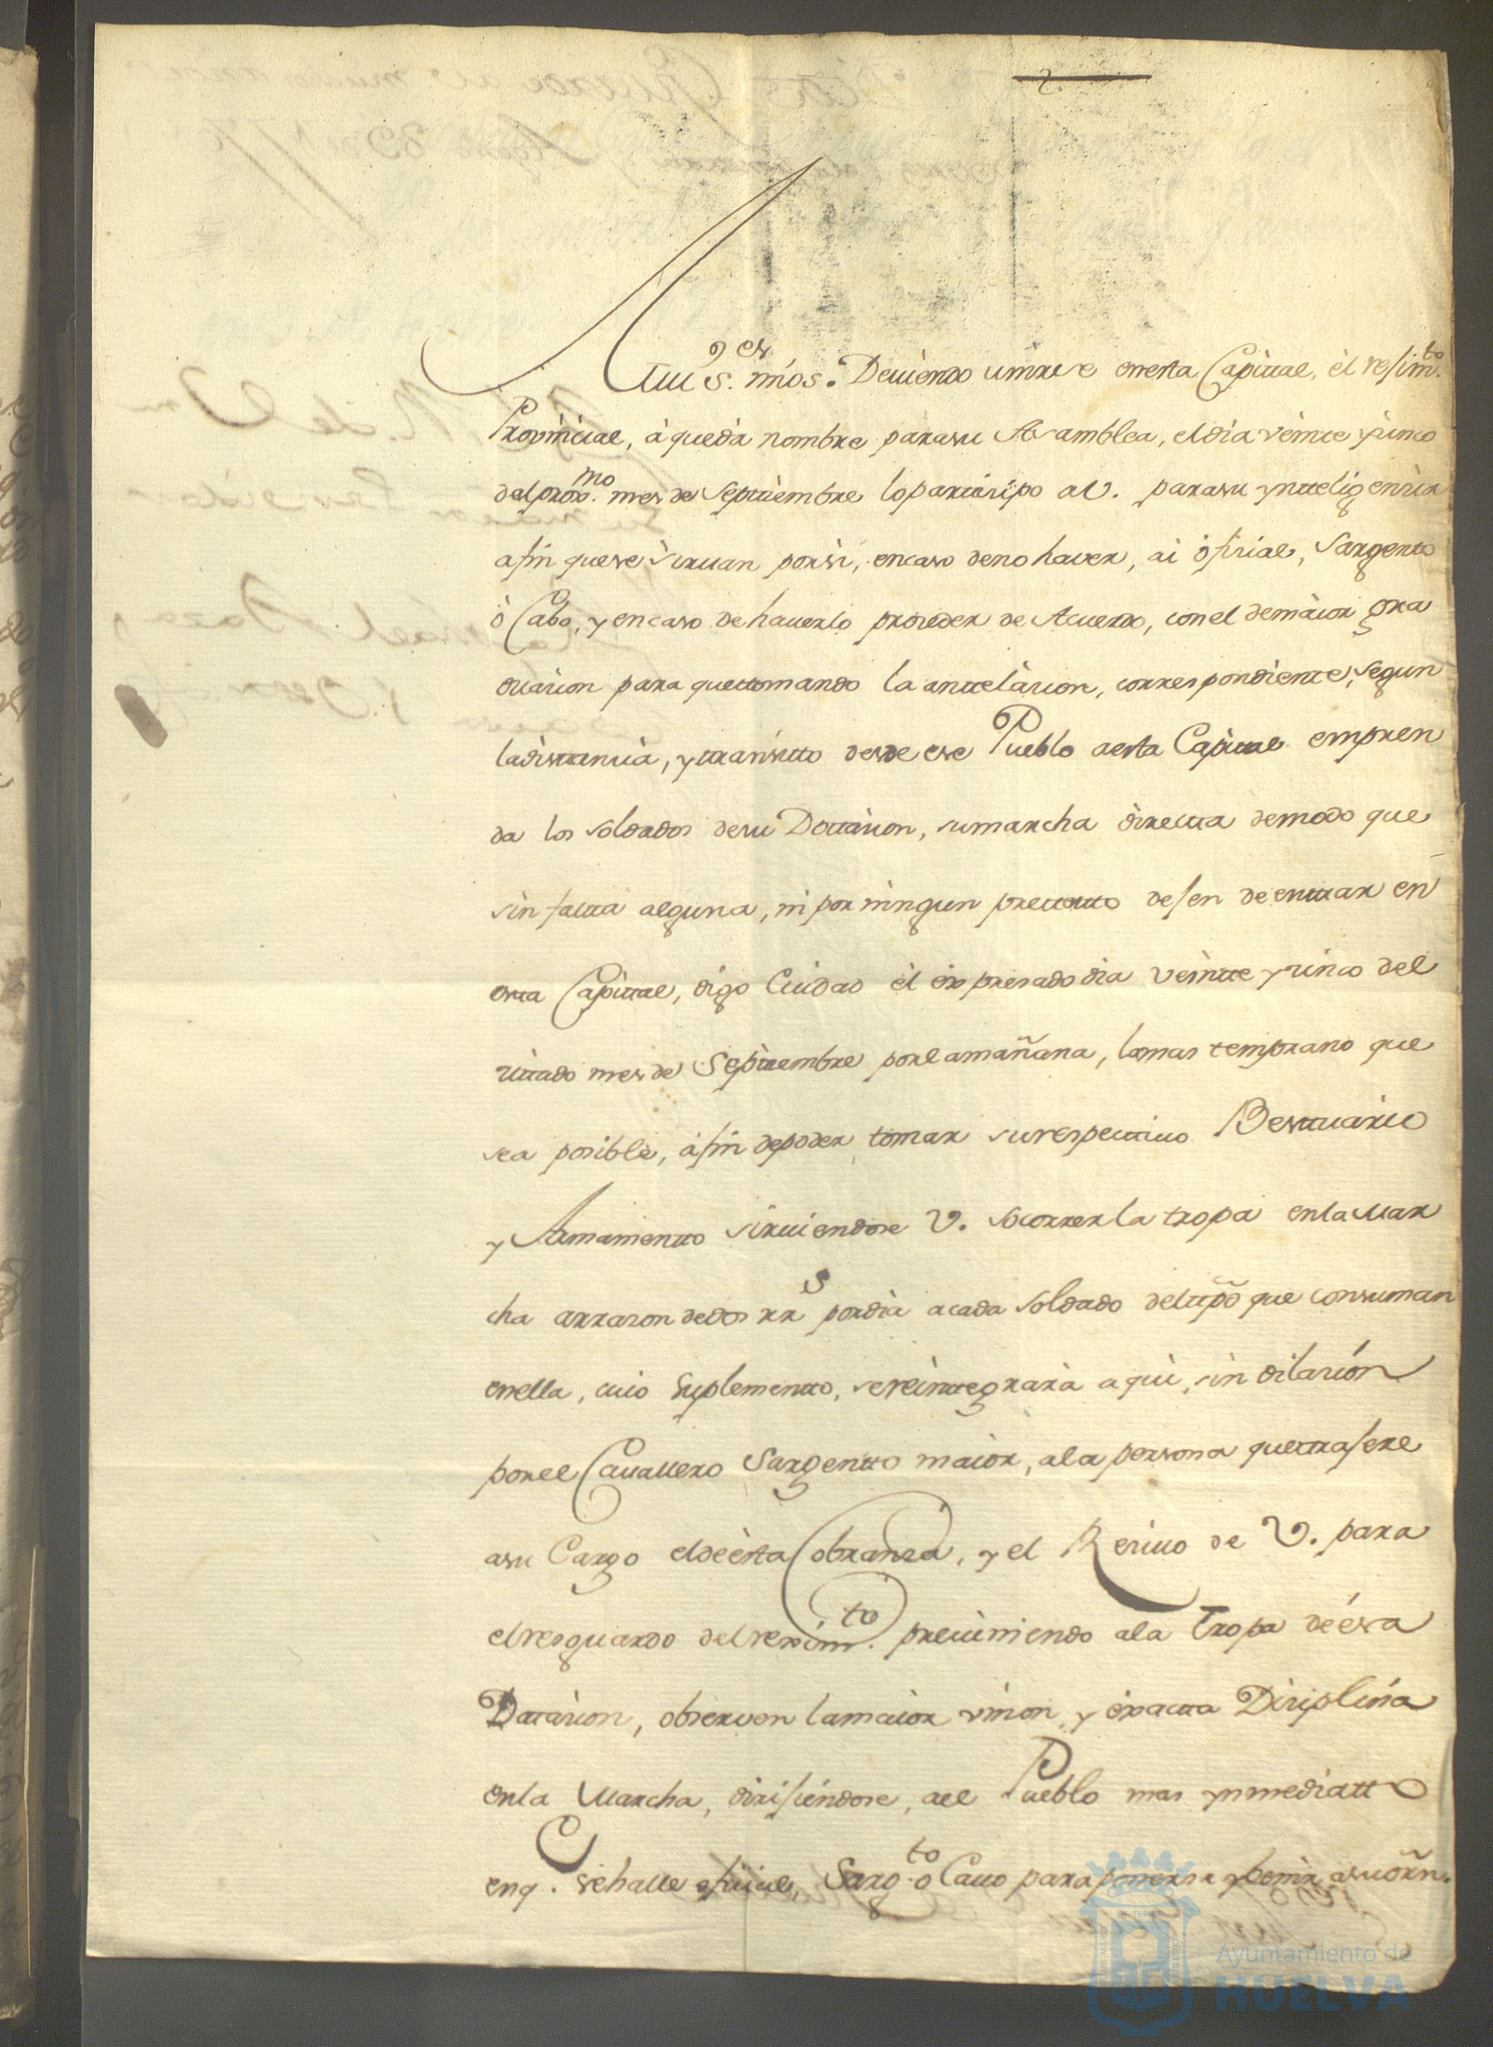 Mui S.res mios. Deviendo unirse en esta Capittal, èl resim.to
Provincial, à que dà nombre para su Asamblea, el dia veinte y cinco
del prox.mo mes de Septtiembre lo partticipo a V. para su yntteligencia
afin que se sirvan por si, en caso de no haver, ai ofisial, Sargento
ò Cabo, y en caso de haverlo proceder de Acuerdo, con el de maior gra
duacion para que ttomando la anttelacion, correspondiente, segun
la disttancia, y transitto desde ese Pueblo a esta Capittal empren
da los soldados de su Dottacion, su marcha directta de modo que
sin faltta alguna, ni por ningun prettextto desen de enttrar en
esta Capittal, digo Ciudad èl expresado dia veintte y cinco del
cittado mes de Septtiembre por la mañana, lo mas temprano que
sea posible, à fin de poder tomar su respecttivo Besttuario
y Armamentto sirviendose V. socorrer la tropa en la Mar
cha a rrazon de dos rr.s por dia a cada soldado del tpõ que consuman
en ella, cuio suplementto, se reinttegrarà aqui, sin dilacion
por el Cavallero Sargentto maior, a la persona que ttrasere
a su Cargo el de èsta Cobranza, y el Recivo de V. para
el resguardo del resim.to previniendo a la Tropa de ésa
Dotacion, observen la maior union y èxactta Diciplina
en la Marcha, dirisiendose, al Pueblo mas ynmediatto
en q. se halle ofisial, Sarg.to o Cavo para ponerse y benir a su orñ.
Ayuntamiento de
HUELVA